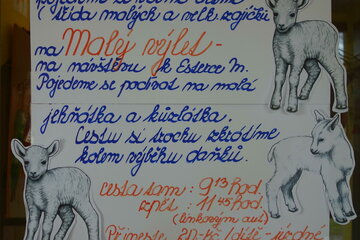 ( třída malých a velk. zajíčků
na Malý výlet -
na návštěvu k Esterce M.
Pojedeme se podívat na malá
jehňátka a kůzlátka.
Cestu si trochu zkrátíme
kolem výběhu daňků.
cesta tam : 9 13 hod.
zpět : 11 45 hod.
(linkovým aut.)
20,-Kč / dítě - jízdné